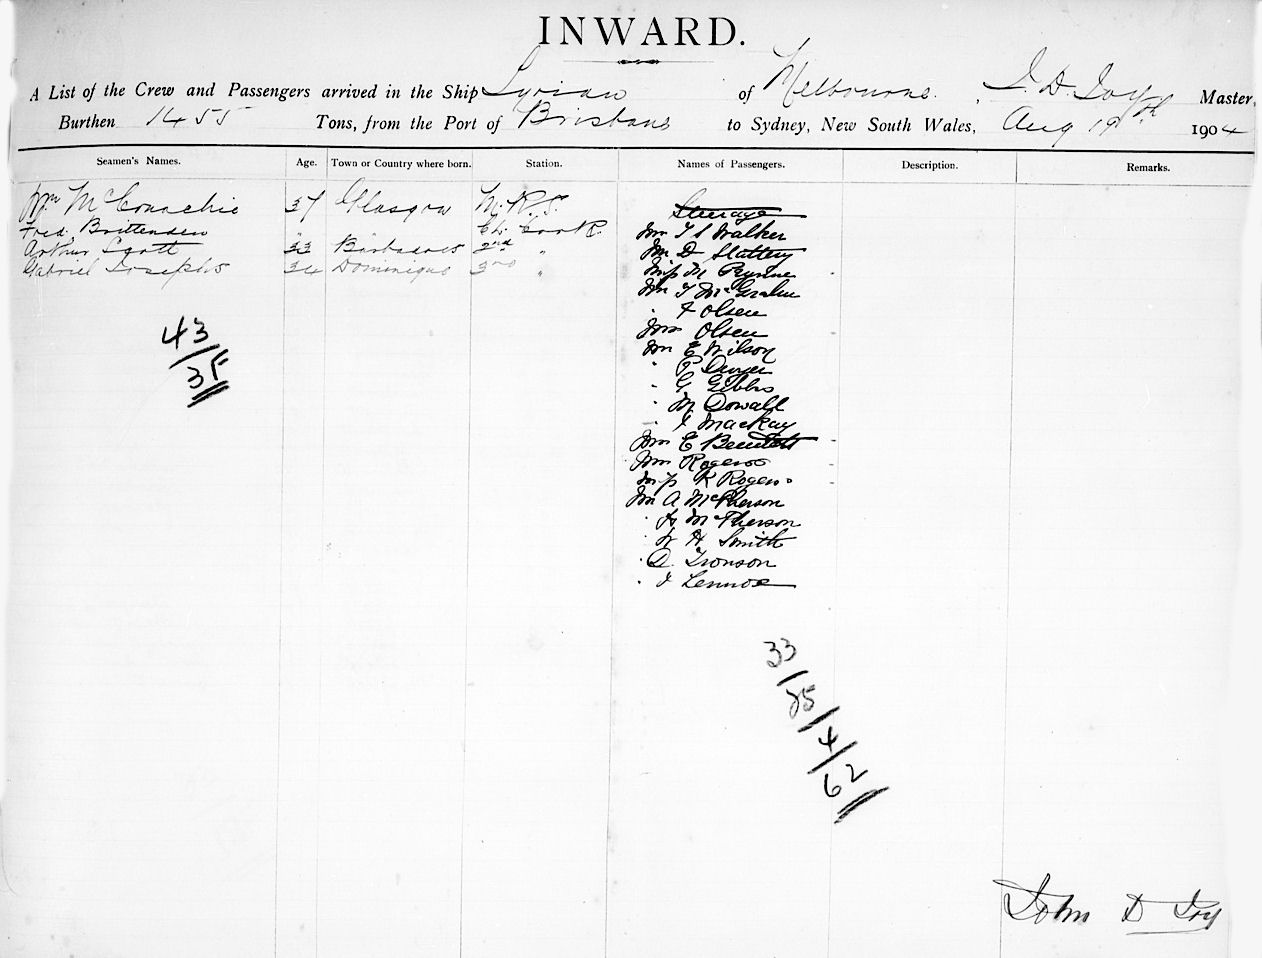 INWARD.
A List of the Crew and Passengers arrived in the Ship Syrian of Melbourne. , J. D. Joy Master,
Burthen 1455 Tons, from the Port of Brisbane to Sydney, New South Wales, Aug 19th 1904
Seamen's Names. Age. Town or Country where born. Station. Names of Passengers. Description. Remarks.
Wm McConachie 37 Glasgow M.R.S.
Fred. Brittenden Ch. Cook.
Arthur Scott 33 Barbadoes 2nd "
Gabriel Josephs 34 Dominique 3rd "
43/3F
Steerage
Mr T S Walker
Mr D Slattery
Miss M Rynne
Mr T McGrahn
" F Olsen
Mrs Olsen
Mr E Wilson
" P Dwyer
" G Gibbs
" M Dowall
" J Mackay
Mrs E Bennett
Mrs Rogers
Miss K Rogers
Mr A McPherson
" McPherson
" W H Smith
" D. Tronson
" J Lennox
33/25/4/62
John D Joy